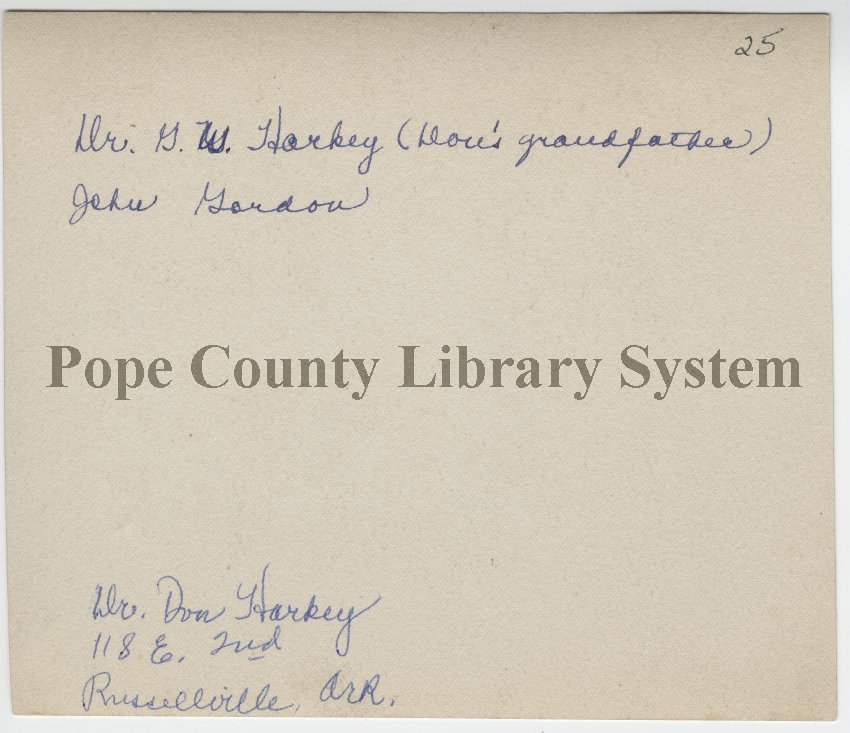 25
Dr. G. W. Harkey (Don's grandfather)
John Gordon
Pope County Library System
Dr. Don Harkey
118 E. 2nd
Russellville, Ark.